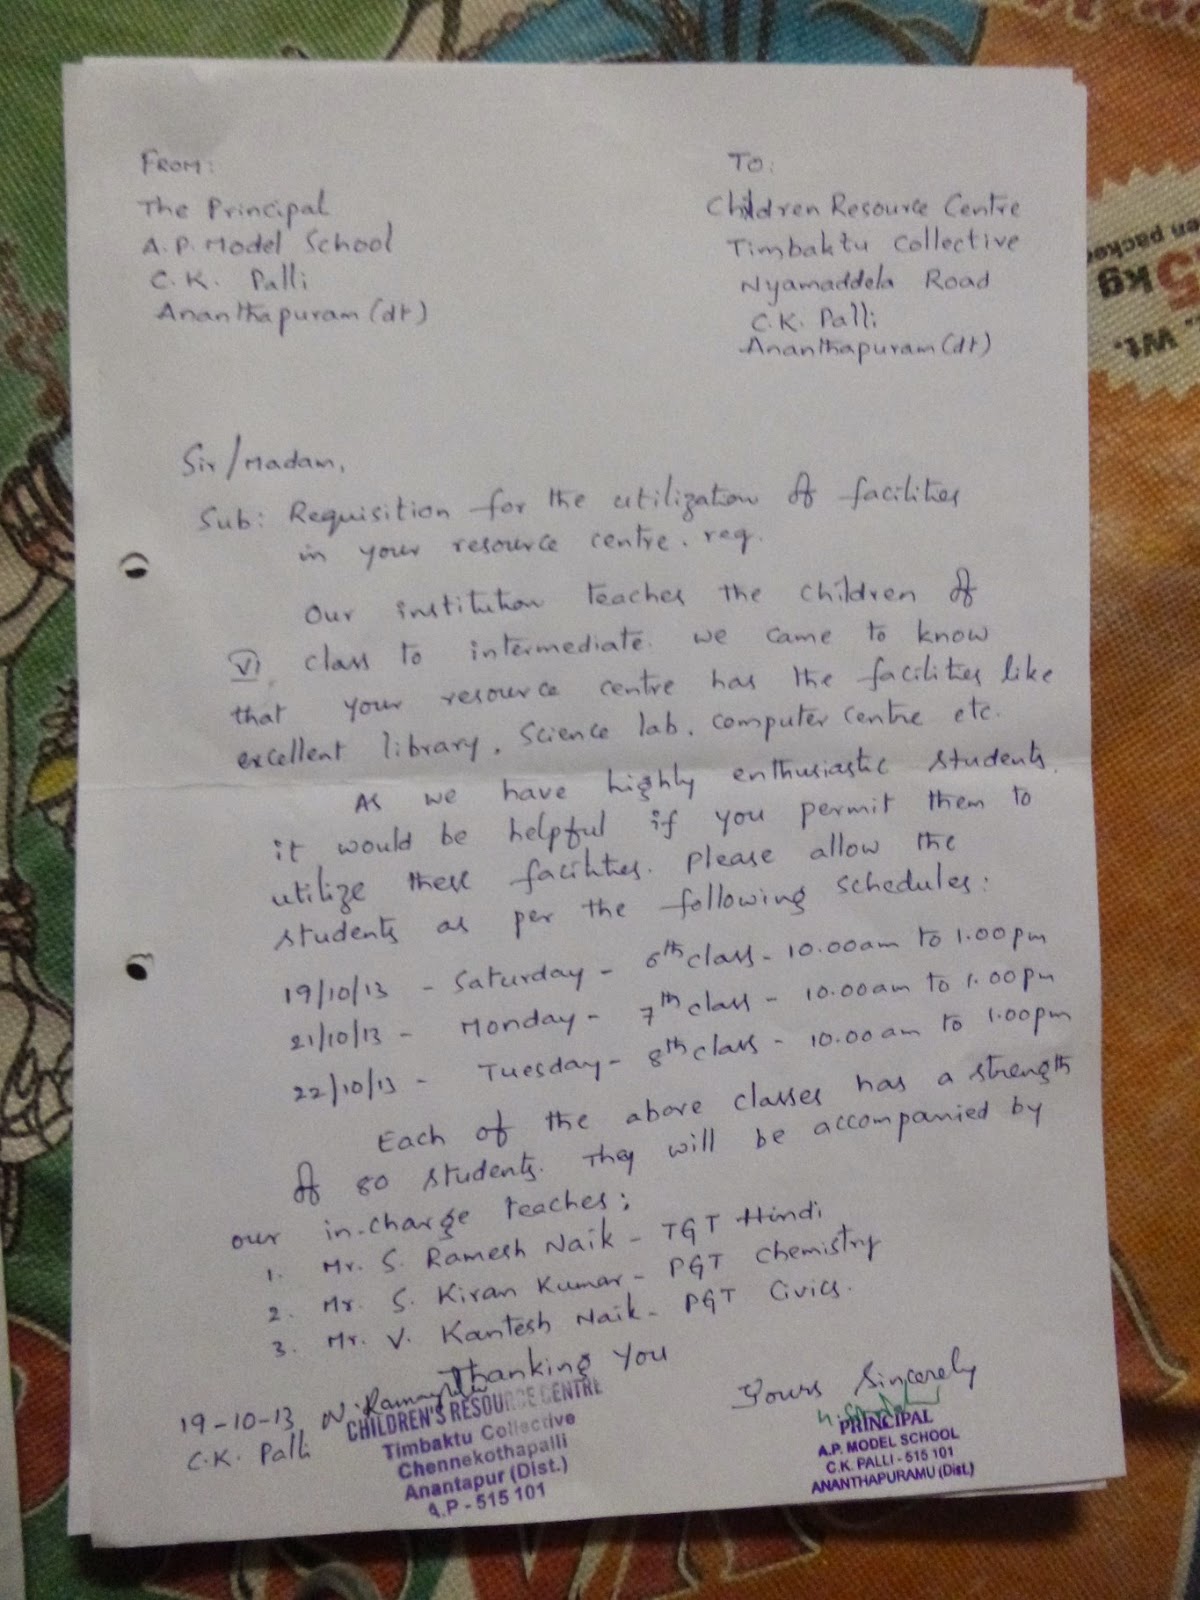 FROM:
The Principal
A.P. Model School
C.K. Palli
Ananthapuram (dt)
TO:
Children Resource Centre
Timbaktu Collective
Nyamaddela Road
C.K. Palli
Ananthapuram (dt)
Sir/Madam,
Sub: Requisition for the utilization of facilities
in your resource centre. req.
Our institution teaches the children of
VI class to intermediate. we came to know
that your resource centre has the facilities like
excellent library, Science lab, computer centre etc.
As we have highly enthusiastic students,
it would be helpful if you permit them to
utilize these facilities. please allow the
students as per the following schedules:
19/10/13 - Saturday - 6th class - 10.00am to 1.00pm
21/10/13 - Monday - 7th class - 10.00am to 1.00pm
22/10/13 - Tuesday - 8th class - 10.00am to 1.00pm
Each of the above classes has a strength
of 80 students. They will be accompanied by
our in-charge teaches:
1. Mr. S. Ramesh Naik - TGT Hindi
2. Mr. S. Kiran Kumar - PGT Chemistry
3. Mr. V. Kantesh Naik - PGT Civics.
Thanking You
19-10-13
C.K. Palli
CHILDREN'S RESOURCE CENTRE
Timbaktu Collective
Chennekothapalli
Anantapur (Dist.)
A.P - 515 101
Yours Sincerely
PRINCIPAL
A.P. MODEL SCHOOL
C.K. PALLI - 515 101
ANANTHAPURAMU (Dist.)
5kg
Wt.